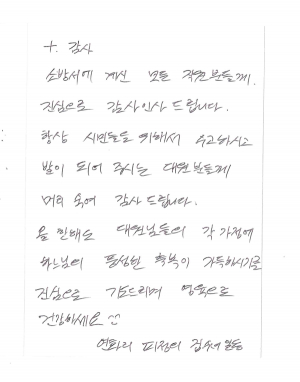 +. 감사
소방서에 계신 모든 직원분들께.
진심으로 감사인사 드립니다.
항상 시민들을 위해서 수고하시고
발이 되어 주시는 대원분들께
머리 숙여 감사 드립니다.
올 한해도 대원님들의 각 가정에
하느님의 풍성한 축복이 가득하시기를
진심으로 기도드리며 영육으로
건강하세요